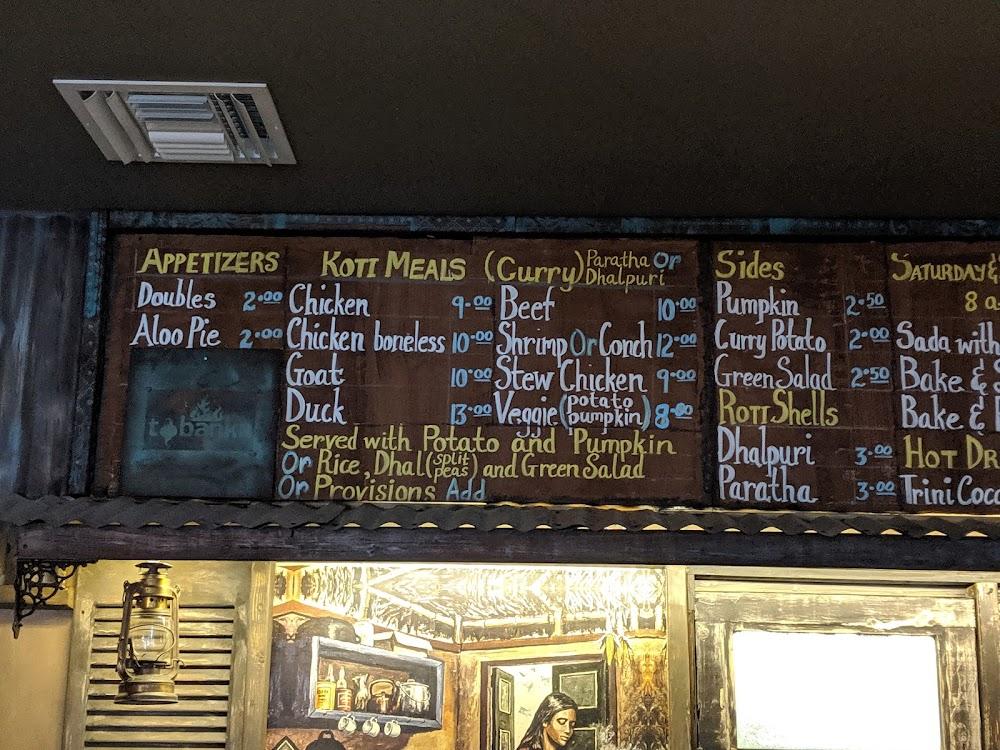 APPETIZERS
Doubles 2.00
Aloo Pie 2.00
ROTI MEALS (Curry) Paratha Or Dhalpuri
Chicken 9.00
Chicken boneless 10.00
Goat 10.00
Duck 13.00
Beef 10.00
Shrimp Or Conch 12.00
Stew Chicken 9.00
Veggie (potato pumpkin) 8.00
Served with Potato and Pumpkin
Or Rice, Dhal (split peas) and Green Salad
Or Provisions Add
Sides
Pumpkin 2.50
Curry Potato 2.00
Green Salad 2.50
ROTI SHELLS
Dhalpuri 3.00
Paratha 3.00
SATURDAY &
8 a
Sada with
Bake &
Bake &
HOT DR
Trini Coco